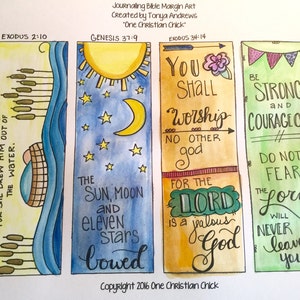 Journaling Bible Margin Art
Created by Tonya Andrews
"One Christian Chick"
EXODUS 2:10
SHE DREW HIM OUT OF
THE WATER.
GENESIS 37:9
THE
SUN, MOON
AND
eleven
STARS
bowed
EXODUS 34:14
YOU
SHALL
Worship
NO OTHER
god
FOR THE
LORD
IS a jealous
God
BE
STRONG
AND
COURAGEO
DO NOT
FEAR
THE
Lord
WILL
NEVER
leave
you
Copyright 2016 One Christian Chick